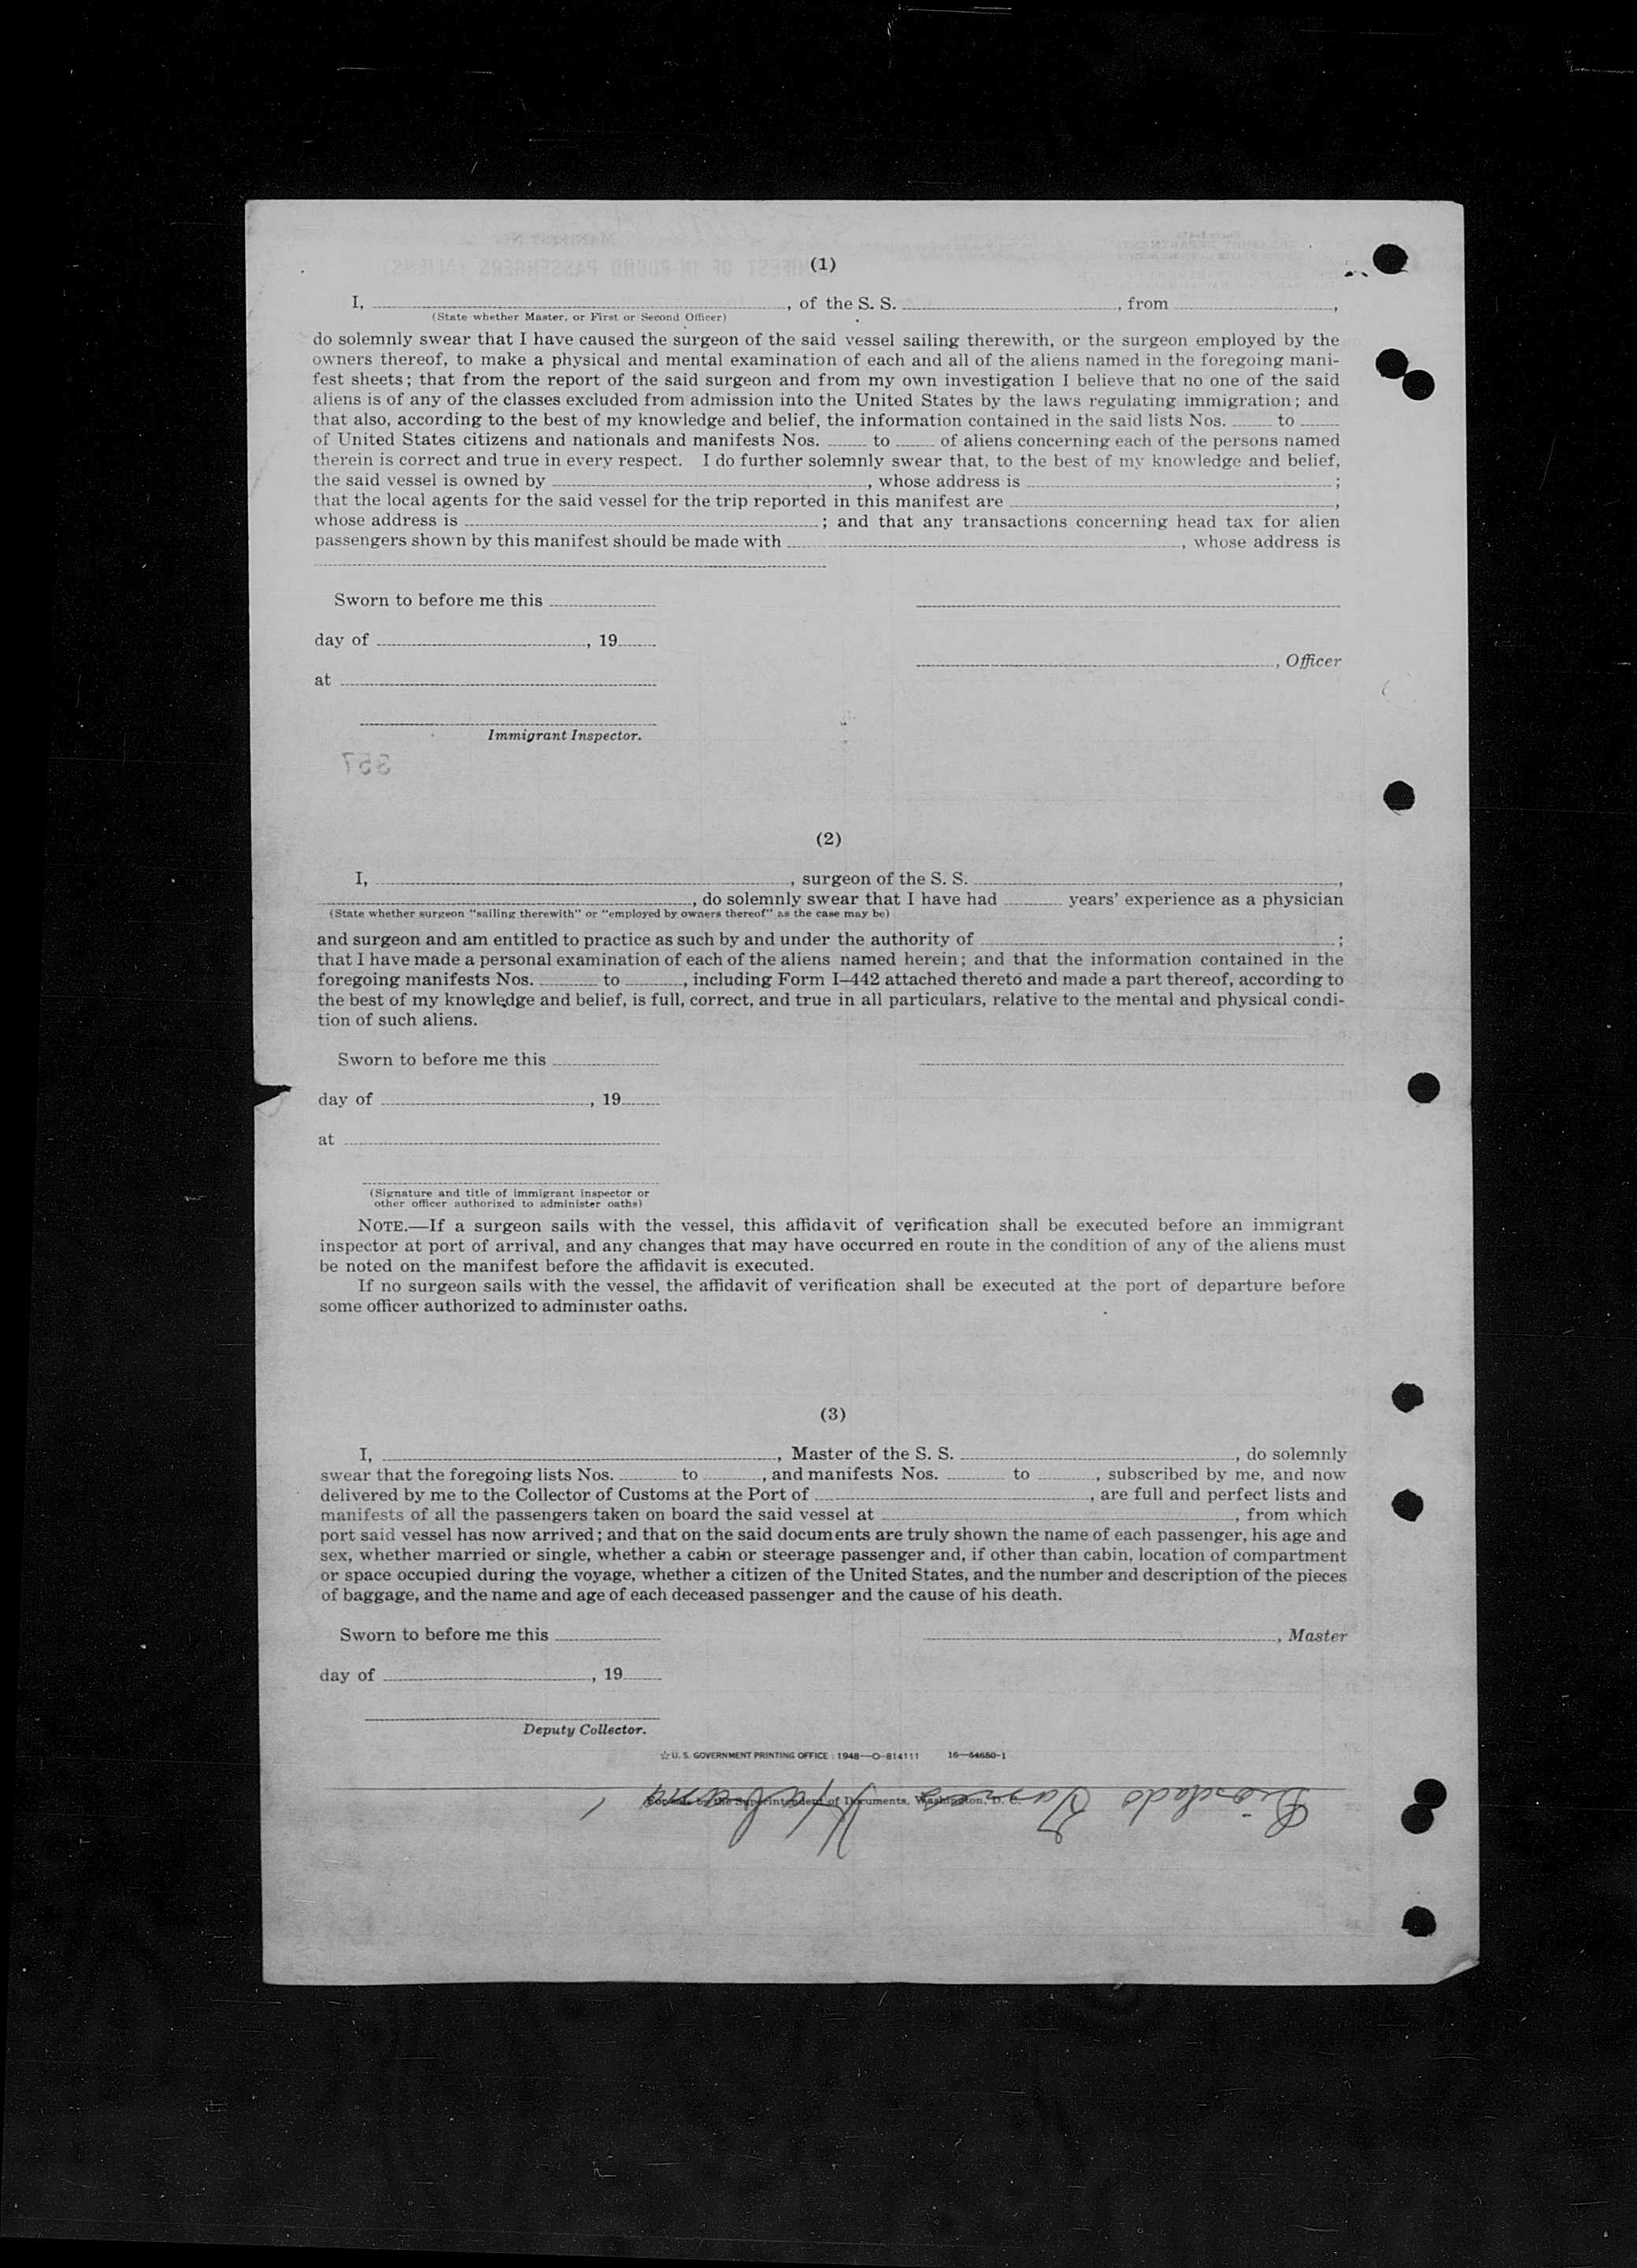 (1)
I, ______, of the S. S. ______, from ______,
(State whether Master, or First or Second Officer)
do solemnly swear that I have caused the surgeon of the said vessel sailing therewith, or the surgeon employed by the
owners thereof, to make a physical and mental examination of each and all of the aliens named in the foregoing mani-
fest sheets; that from the report of the said surgeon and from my own investigation I believe that no one of the said
aliens is of any of the classes excluded from admission into the United States by the laws regulating immigration; and
that also, according to the best of my knowledge and belief, the information contained in the said lists Nos. ______ to ______
of United States citizens and nationals and manifests Nos. ______ to ______ of aliens concerning each of the persons named
therein is correct and true in every respect. I do further solemnly swear that, to the best of my knowledge and belief,
the said vessel is owned by ______, whose address is ______;
that the local agents for the said vessel for the trip reported in this manifest are ______,
whose address is ______; and that any transactions concerning head tax for alien
passengers shown by this manifest should be made with ______, whose address is
______
Sworn to before me this ______
day of ______, 19____
______, Officer
at ______
Immigrant Inspector.
357
(2)
I, ______, surgeon of the S. S. ______,
______, do solemnly swear that I have had ______ years' experience as a physician
(State whether surgeon "sailing therewith" or "employed by owners thereof" as the case may be)
and surgeon and am entitled to practice as such by and under the authority of ______;
that I have made a personal examination of each of the aliens named herein; and that the information contained in the
foregoing manifests Nos. ______ to ______, including Form I–442 attached thereto and made a part thereof, according to
the best of my knowledge and belief, is full, correct, and true in all particulars, relative to the mental and physical condi-
tion of such aliens.
Sworn to before me this ______
day of ______, 19____
at ______
(Signature and title of immigrant inspector or
other officer authorized to administer oaths)
NOTE.—If a surgeon sails with the vessel, this affidavit of verification shall be executed before an immigrant
inspector at port of arrival, and any changes that may have occurred en route in the condition of any of the aliens must
be noted on the manifest before the affidavit is executed.
If no surgeon sails with the vessel, the affidavit of verification shall be executed at the port of departure before
some officer authorized to administer oaths.
(3)
I, ______, Master of the S. S. ______, do solemnly
swear that the foregoing lists Nos. ______ to ______, and manifests Nos. ______ to ______, subscribed by me, and now
delivered by me to the Collector of Customs at the Port of ______, are full and perfect lists and
manifests of all the passengers taken on board the said vessel at ______, from which
port said vessel has now arrived; and that on the said documents are truly shown the name of each passenger, his age and
sex, whether married or single, whether a cabin or steerage passenger and, if other than cabin, location of compartment
or space occupied during the voyage, whether a citizen of the United States, and the number and description of the pieces
of baggage, and the name and age of each deceased passenger and the cause of his death.
Sworn to before me this ______
______, Master
day of ______, 19____
Deputy Collector.
☆ U. S. GOVERNMENT PRINTING OFFICE : 1948—O-814111 16—54650-1
by the Superintendent of Documents, Washington, D. C.